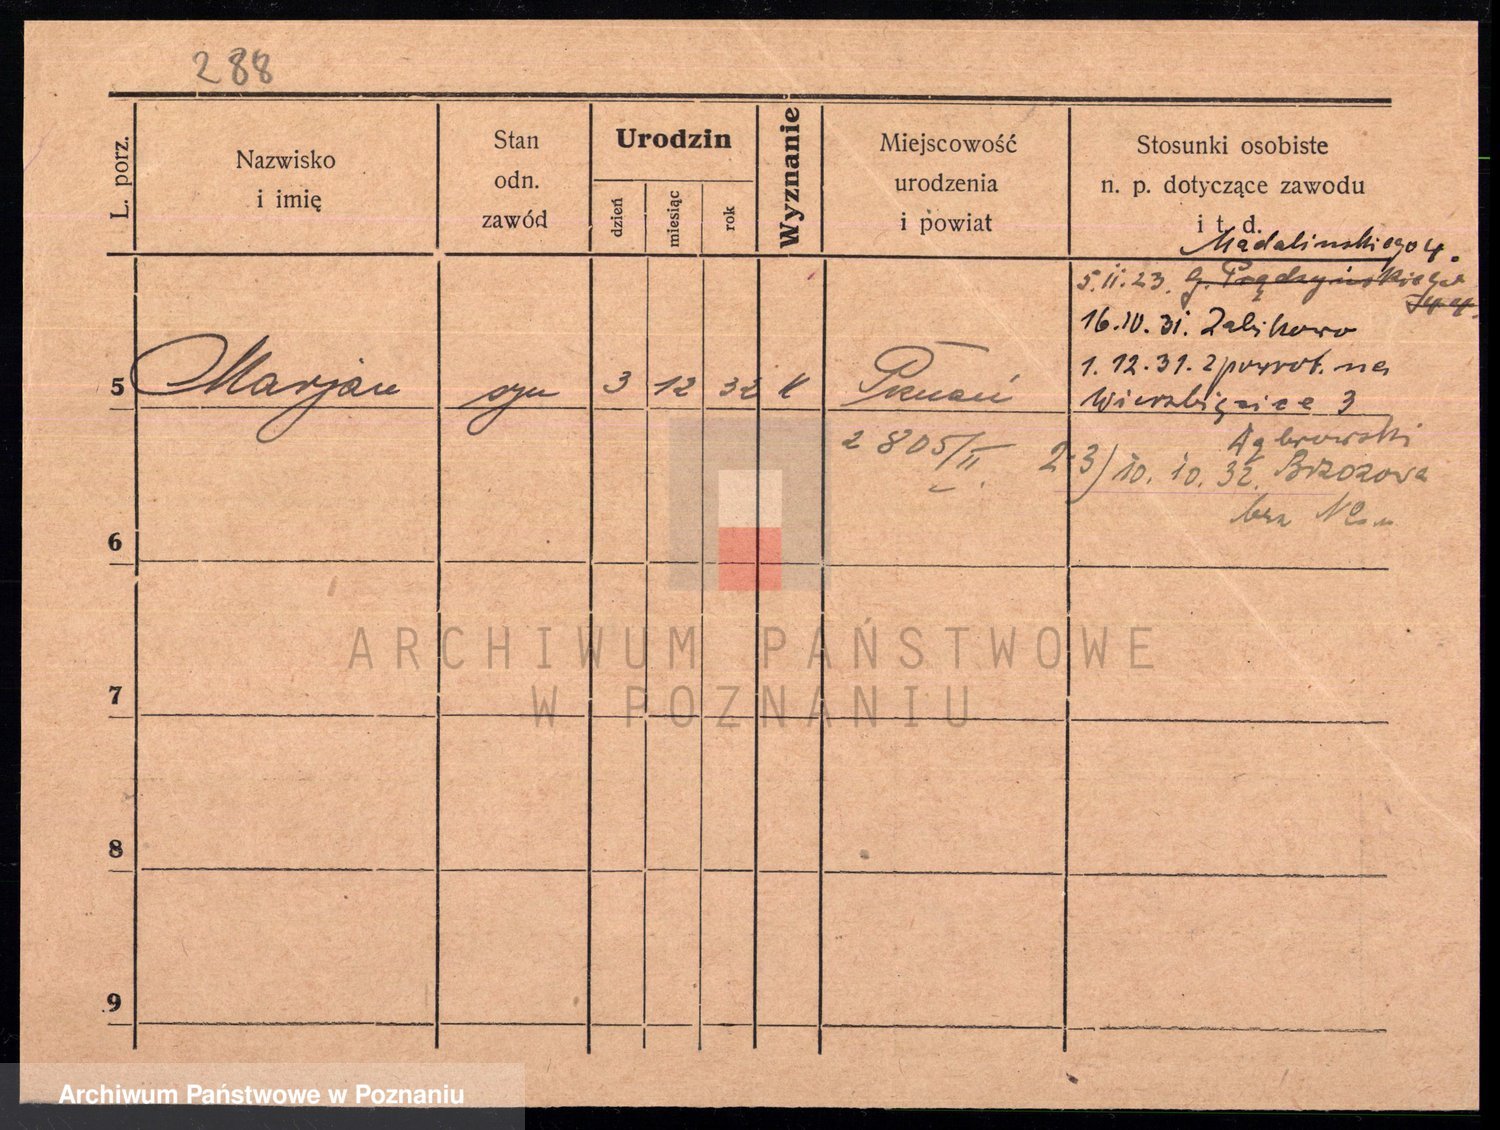 288
L. porz.
Nazwisko
i imię
Stan
odn.
zawód
Urodzin
dzień
miesiąc
rok
Wyznanie
Miejscowość
urodzenia
i powiat
Stosunki osobiste
n. p. dotyczące zawodu
i t. d.
Madalinskiego 4.
5.II.23. G. Prądzyńskiego
44.
16.IV.31. Żabikowo
1.12.31. z powrot. na
Wierzbięcice 3
5
Marjan
syn
3
12
32
k
Poznań
2805/II.
Dąbrowski
2-3) 10. 10. 32. Brzozowa
bez
6
7
8
9
ARCHIWUM PAŃSTWOWE
W POZNANIU
Archiwum Państwowe w Poznaniu